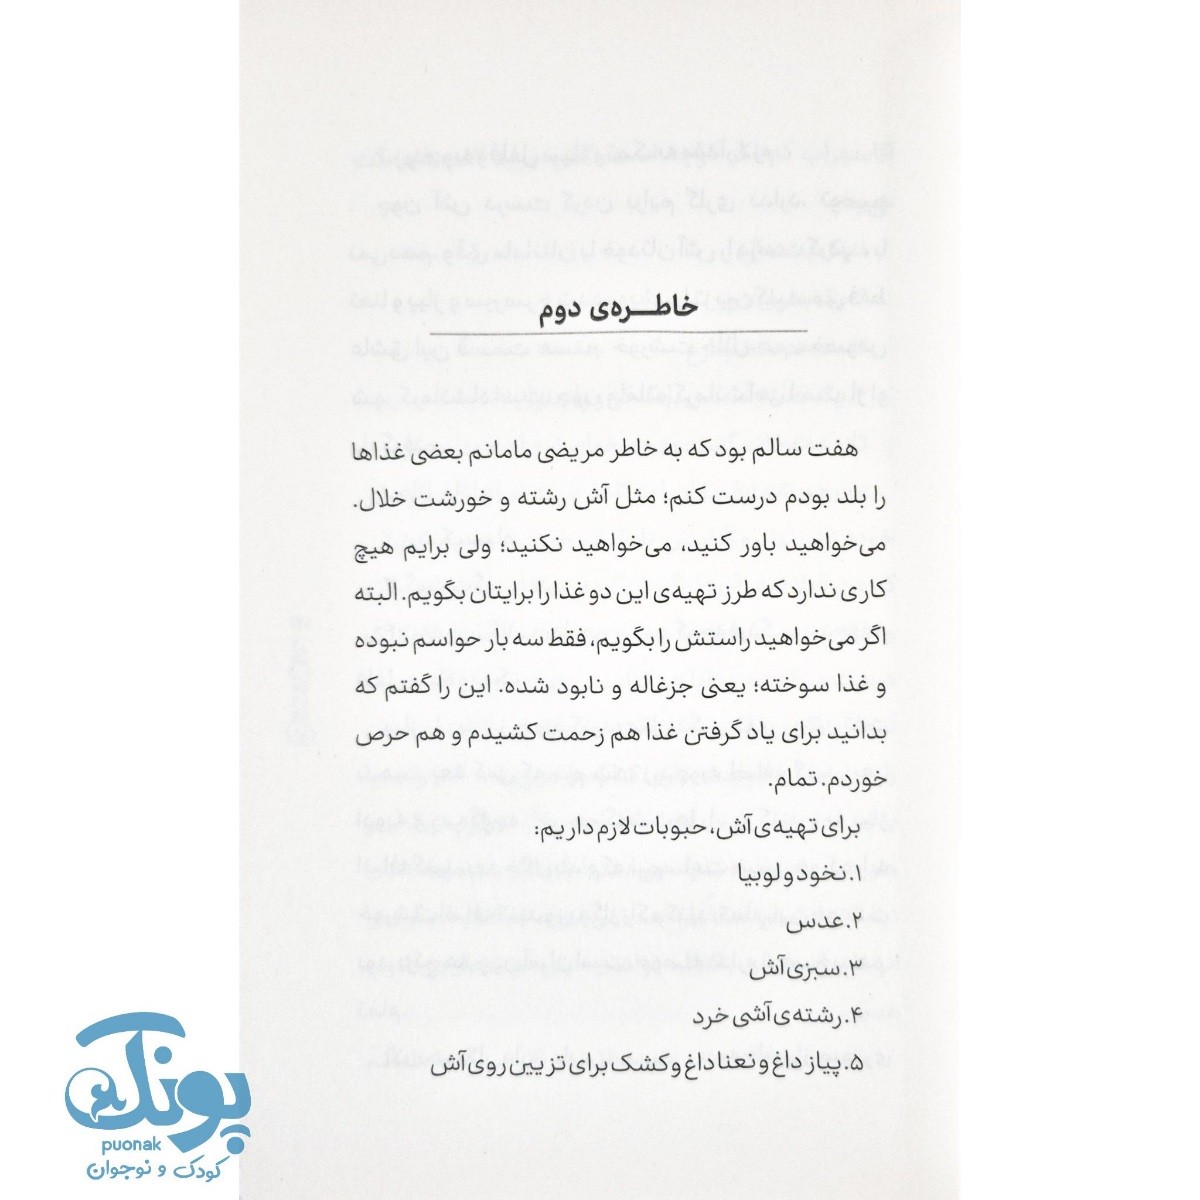 خاطره‌ی دوم
هفت سالم بود که به خاطر مریضی مامانم بعضی غذاها
را بلد بودم درست کنم؛ مثل آش رشته و خورشت خلال.
می‌خواهید باور کنید، می‌خواهید نکنید؛ ولی برایم هیچ
کاری ندارد که طرز تهیه‌ی این دو غذا را برایتان بگویم. البته
اگر می‌خواهید راستش را بگویم، فقط سه بار حواسم نبوده
و غذا سوخته؛ یعنی جزغاله و نابود شده. این را گفتم که
بدانید برای یاد گرفتن غذا هم زحمت کشیدم و هم حرص
خوردم. تمام.
برای تهیه‌ی آش، حبوبات لازم داریم:
۱. نخود و لوبیا
۲. عدس
۳. سبزی آش
۴. رشته‌ی آشی خرد
۵. پیاز داغ و نعنا داغ و کشک برای تزیین روی آش
پونک
puonak
کودک و نوجوان